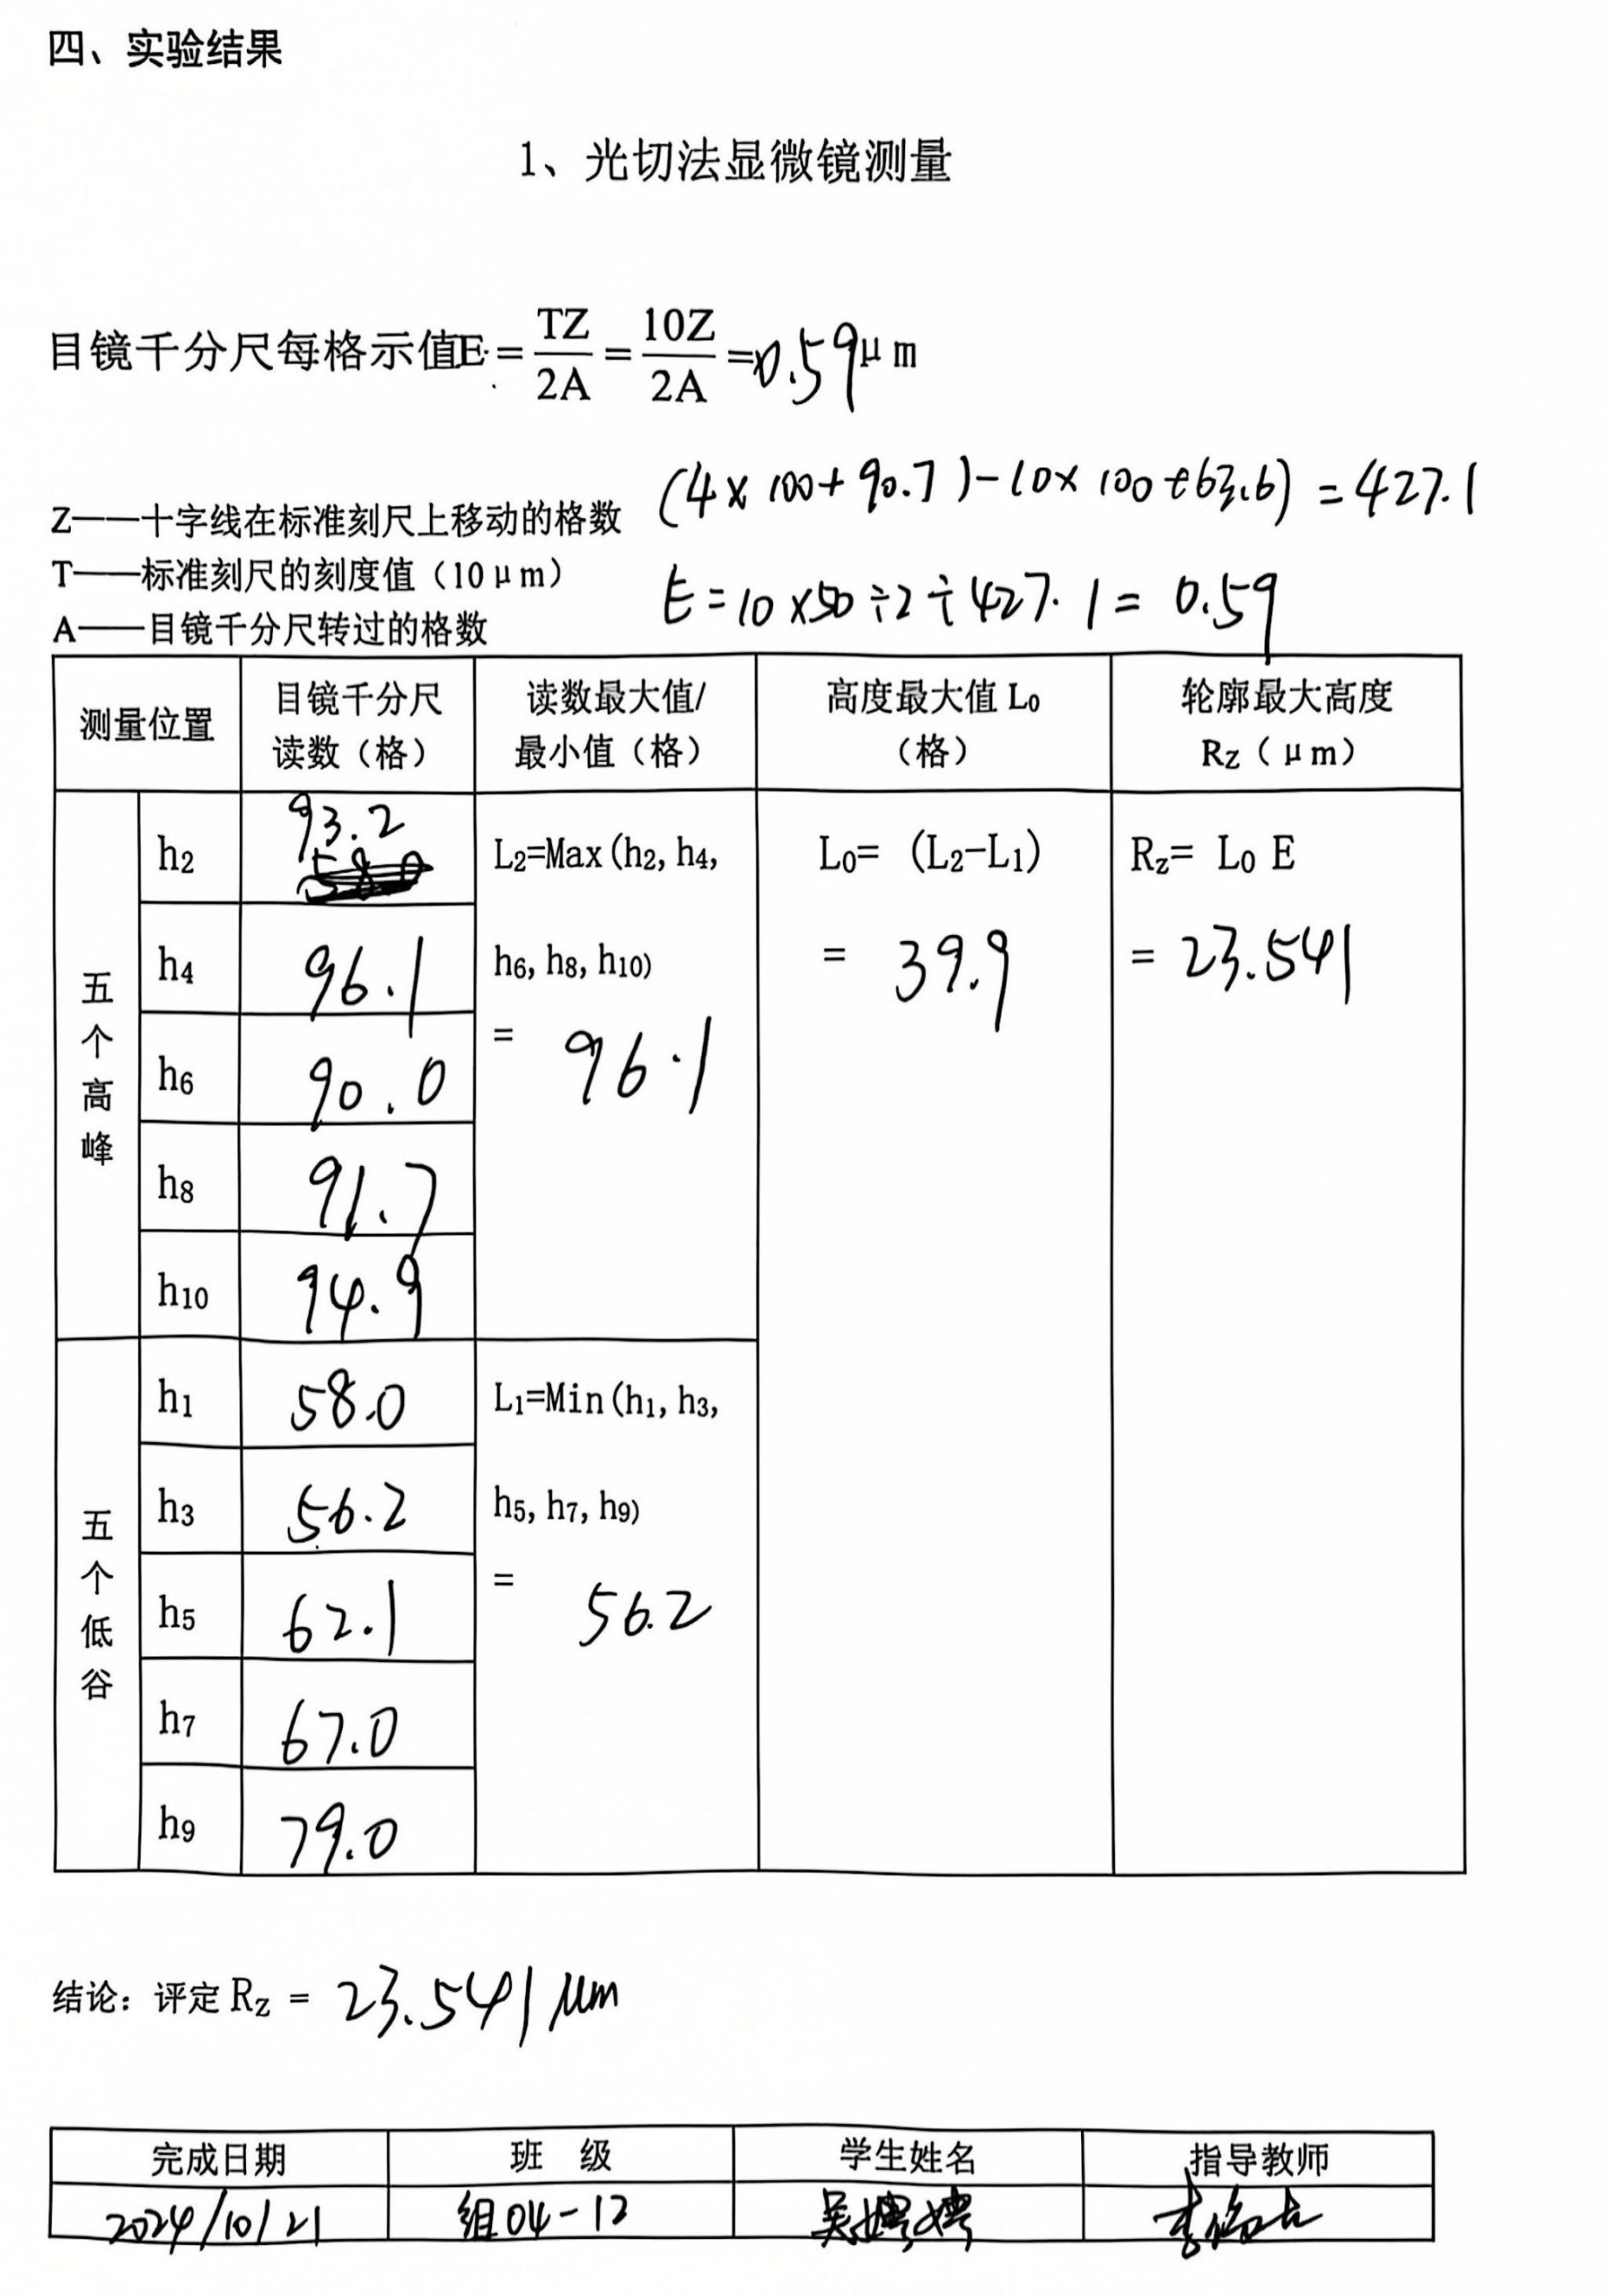 四、实验结果
1、光切法显微镜测量
目镜千分尺每格示值E = TZ/2A = 10Z/2A = 0.59 μm
(4×100+90.7)-(0×100+63.6) = 427.1
Z——十字线在标准刻尺上移动的格数
T——标准刻尺的刻度值（10μm）
E = 10×50÷2÷427.1 = 0.59
A——目镜千分尺转过的格数
测量位置 目镜千分尺读数（格） 读数最大值/最小值（格） 高度最大值 L0（格） 轮廓最大高度 Rz（μm）
五个高峰
h2 93.2
L2=Max(h2, h4, h6, h8, h10)
= 96.1
L0= (L2-L1)
= 39.9
Rz= L0 E
= 23.541
h4 96.1
h6 90.0
h8 91.7
h10 94.9
五个低谷
h1 58.0
L1=Min(h1, h3, h5, h7, h9)
= 56.2
h3 56.2
h5 62.1
h7 67.0
h9 79.0
结论：评定 Rz = 23.541 μm
完成日期 班 级 学生姓名 指导教师
2024/10/21 组04-12 吴娉娉 李